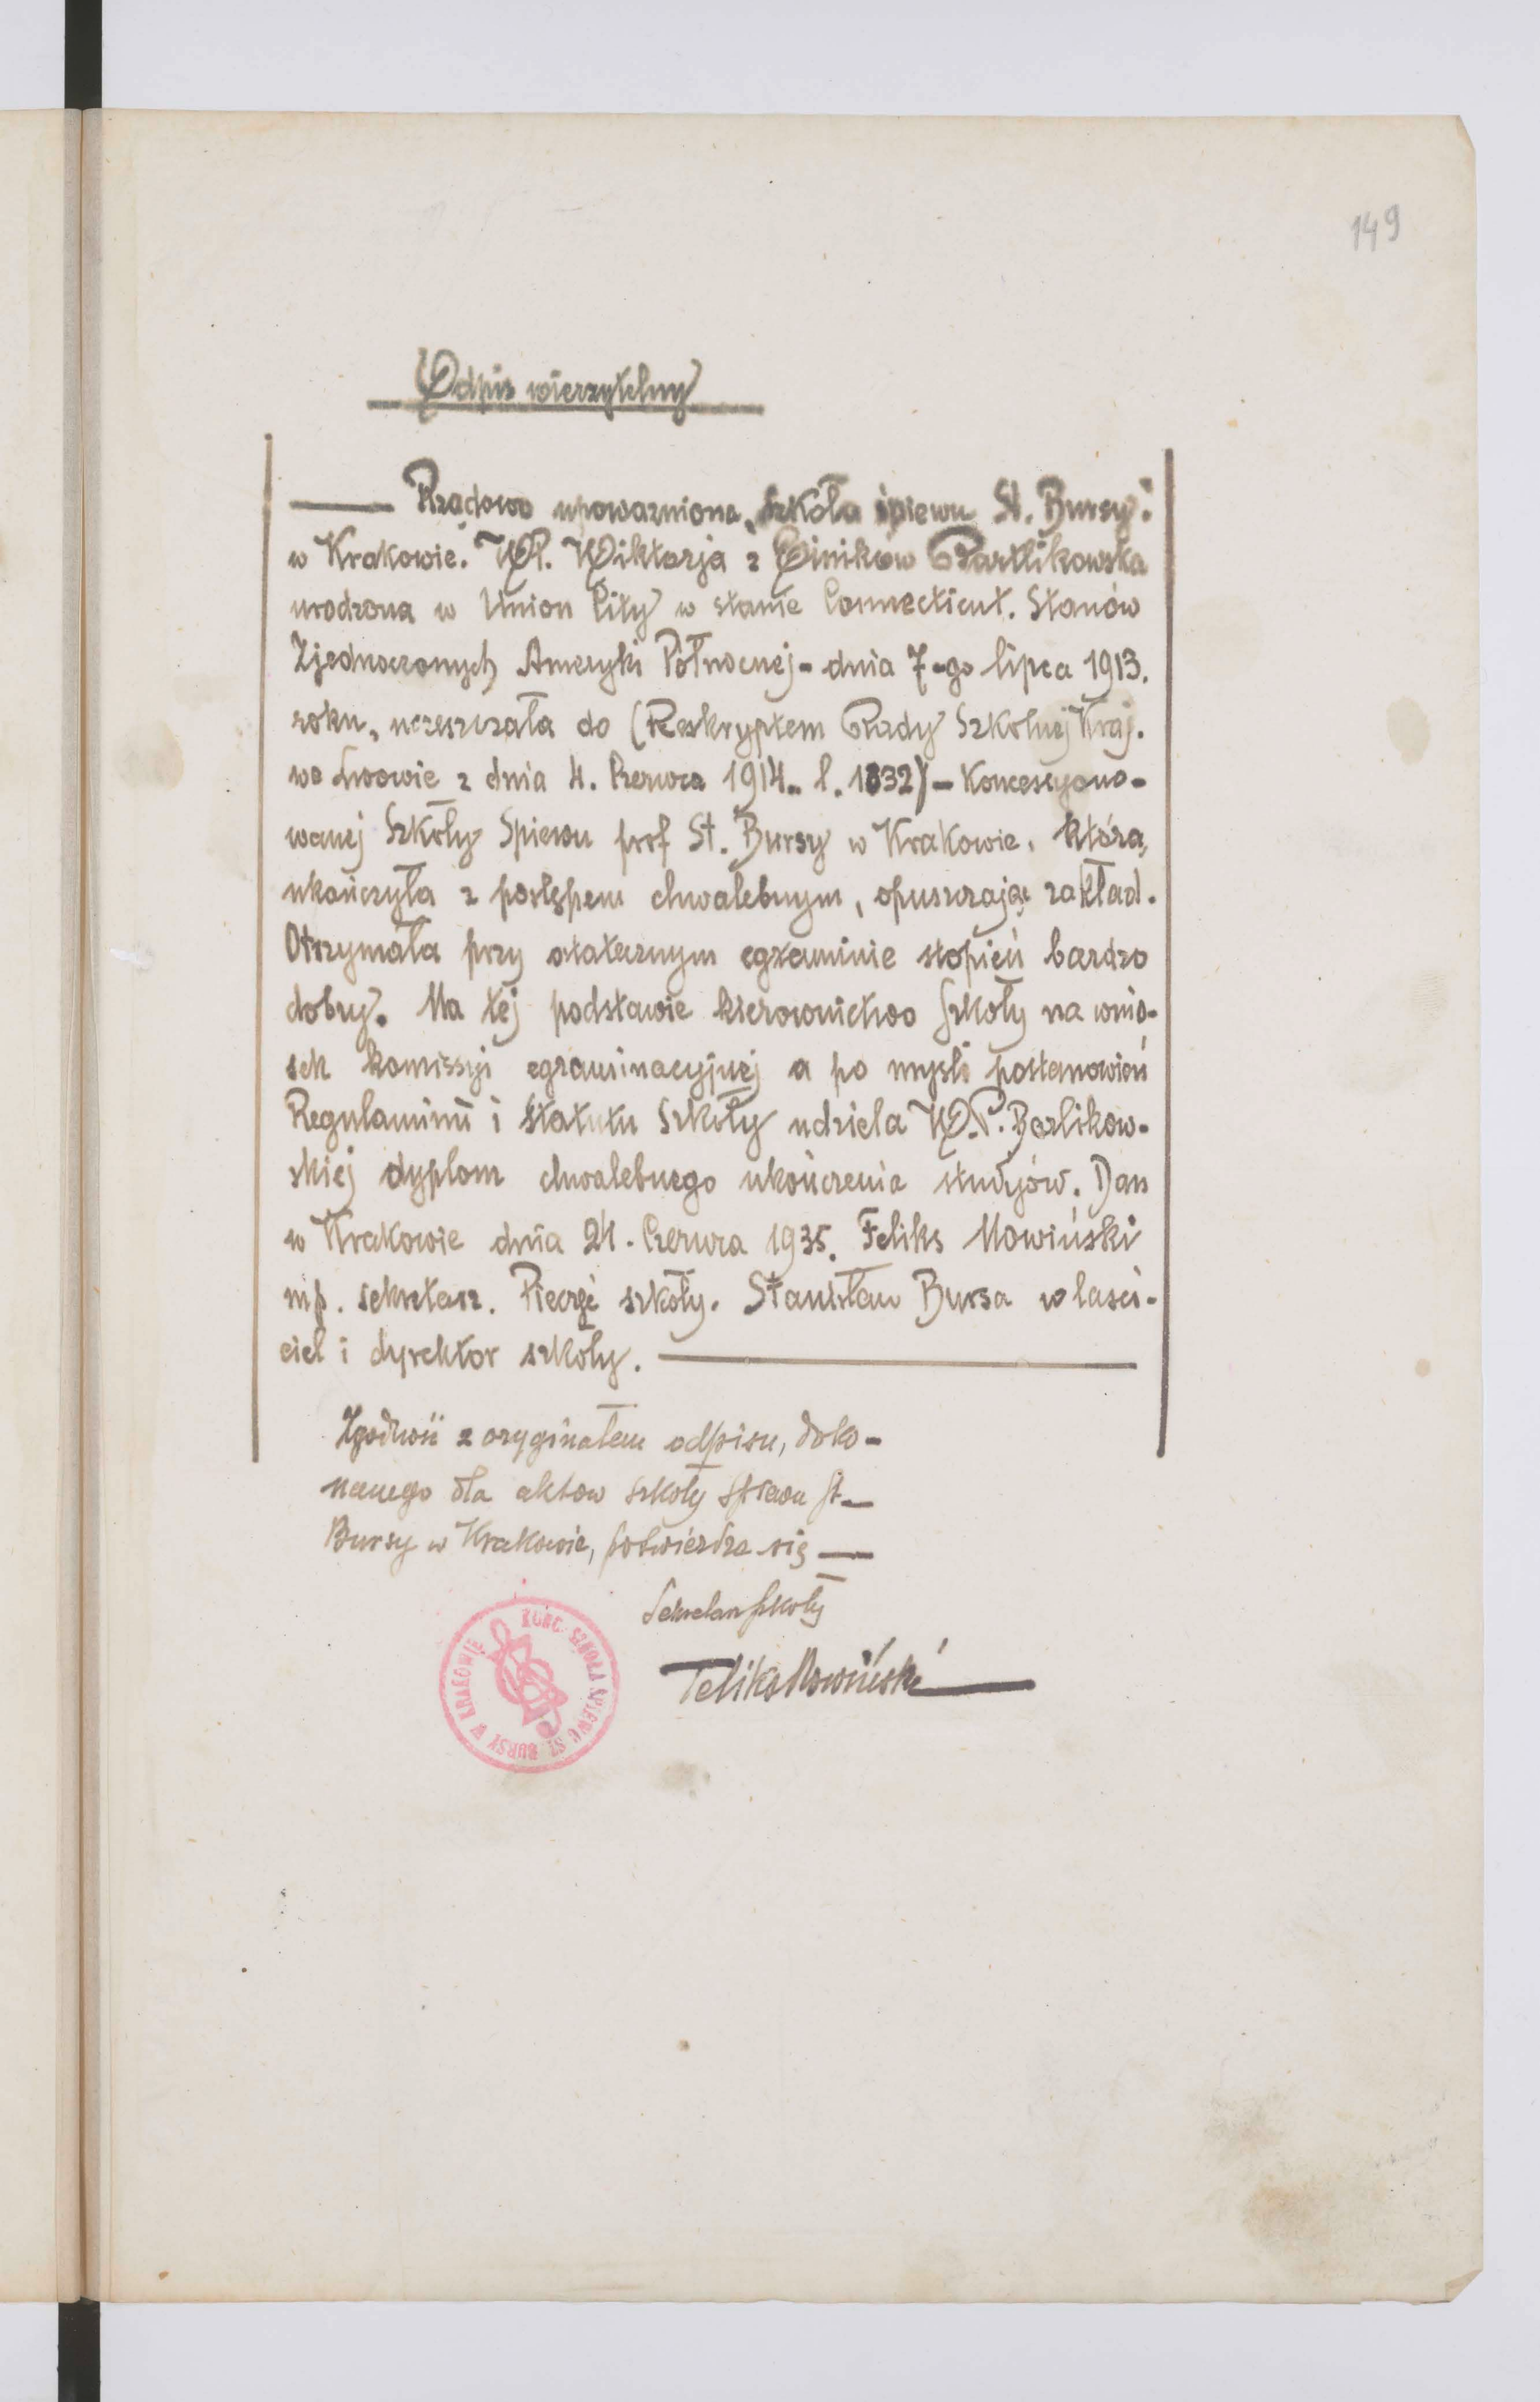 149
Odpis wierzytelny
Rządowo upoważniona „Szkoła śpiewu St. Bursy"
w Krakowie. WP. Wiktorja z Barlikowska
urodzona w Union City w stanie Connecticut. Stanów
Zjednoczonych Ameryki Północnej - dnia 7-go lipca 1913.
roku, uczęszczała do (Reskryptem Rady Szkolnej Kraj.
we Lwowie z dnia 4. Czerwca 1914. l. 1832) - Koncesyono-
wanej Szkoły Śpiewu prof St. Bursy w Krakowie, którą,
ukończyła z postępem chwalebnym, opuszczając zakład.
Otrzymała przy ostatecznym egzaminie stopień bardzo
dobry. Na tej podstawie kierownictwo Szkoły na wnio-
sek komissyi egzaminacyjnej a po myśli postanowień
Regulaminu i Statutu Szkoły udziela W.P. Barlikow-
skiej dyplom chwalebnego ukończenia studyjów. Dan
w Krakowie dnia 24. Czerwca 1935. Feliks Nowiński
mp. sekretarz. Pieczęć szkoły. Stanisław Bursa właści-
ciel i dyrektor szkoły.
Zgodność z oryginałem odpisu, doko-
nanego dla aktów szkoły śpiewu St.
Bursy w Krakowie, potwierdza się
Sekretarz szkoły
Feliks Nowiński
KONC. SZKOŁA ŚPIEWU ST. BURSY W KRAKOWIE